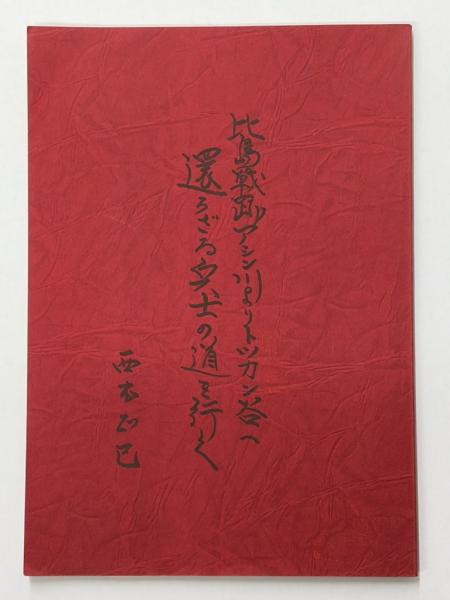 比島戦跡アシン川よりトッカン谷へ
還らざる兵士の道を行く
西本正巳